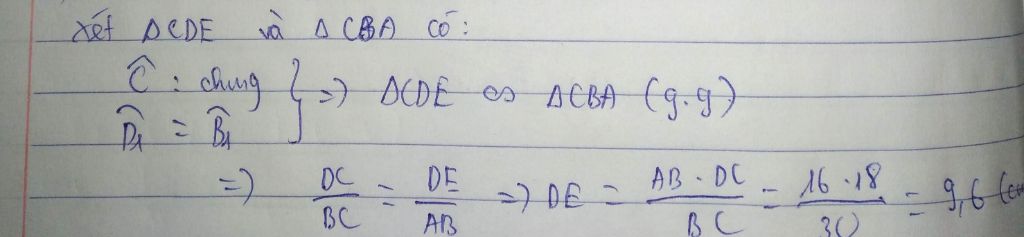 Xét ΔCDE và ΔCBA có:
Ĉ : chung } => ΔCDE ∽ ΔCBA (g.g)
D̂₁ = B̂₁
=> DC/BC = DE/AB => DE = AB · DC/BC = 16 · 18/30 = 9,6 (cm